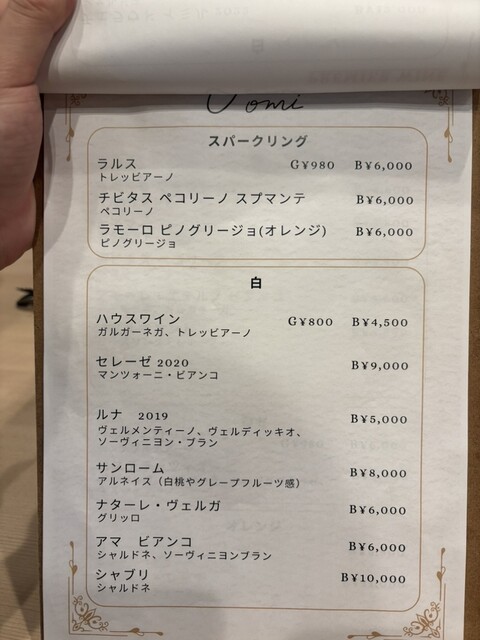 omi
スパークリング
ラルス G¥980 B¥6,000
トレッビアーノ
チビタス ペコリーノ スプマンテ B¥6,000
ペコリーノ
ラモーロ ピノグリージョ(オレンジ) B¥6,000
ピノグリージョ
白
ハウスワイン G¥800 B¥4,500
ガルガーネガ、トレッビアーノ
セレーゼ 2020 B¥9,000
マンツォーニ・ビアンコ
ルナ 2019 B¥5,000
ヴェルメンティーノ、ヴェルディッキオ、
ソーヴィニヨン・ブラン
サンローム B¥8,000
アルネイス（白桃やグレープフルーツ感）
ナターレ・ヴェルガ B¥6,000
グリッロ
アマ ビアンコ B¥6,000
シャルドネ、ソーヴィニヨンブラン
シャブリ B¥10,000
シャルドネ